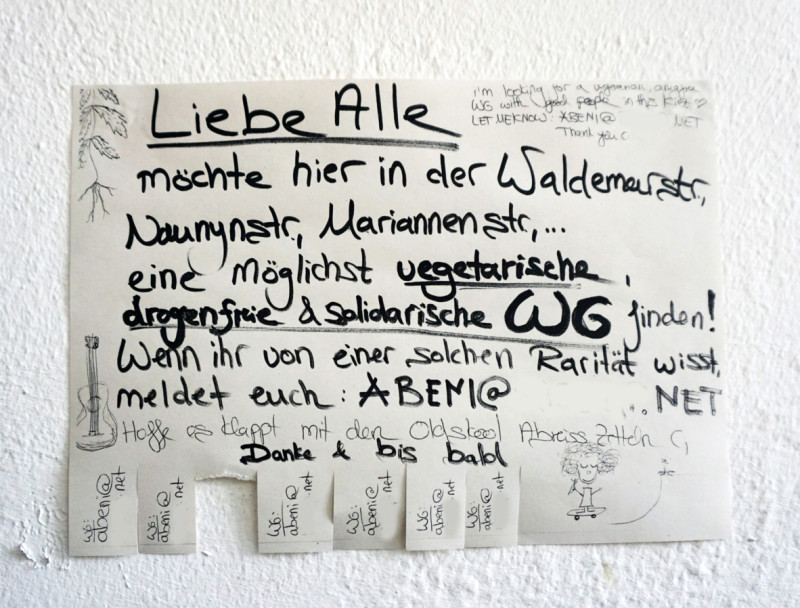 Liebe Alle
i'm looking for a vegetarian, amazing
WG with good people in this Kiez
LET ME KNOW: ABENI@ NET
Thank you
möchte hier in der Waldemarstr.,
Naunynstr., Mariannenstr,...
eine möglichst vegetarische,
drogenfreie & solidarische WG finden!
Wenn ihr von einer solchen Rarität wisst,
meldet euch: ABENI@ ...NET
Hoffe es klappt mit den Oldskool Abreiss Zetteln
Danke & bis bald
WG:
abeni@
net
WG:
abeni@
net
WG:
abeni@
net
WG:
abeni@
net
WG:
abeni@
net
WG:
abeni@
net